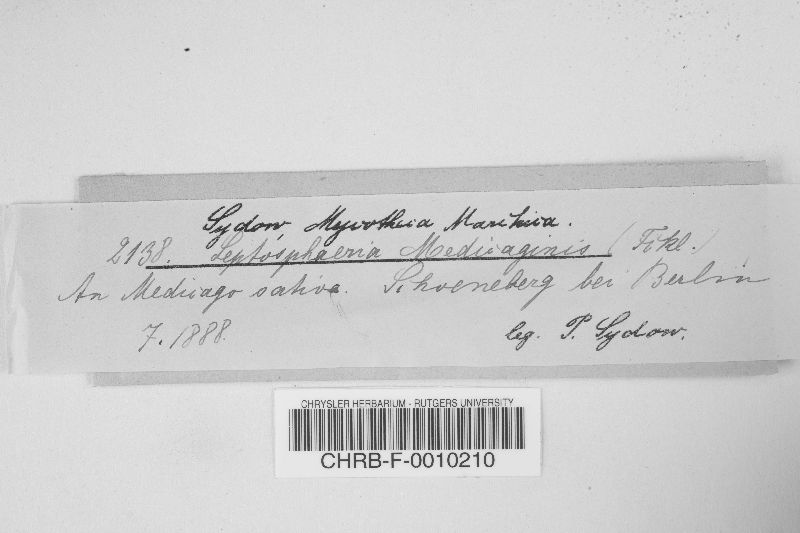 Sydow, Mycotheca Marchica.
2138. Leptosphaeria Medicaginis (Fckl.)
An Medicago sativa. Schoeneberg bei Berlin
7. 1888. leg. P. Sydow.
CHRYSLER HERBARIUM - RUTGERS UNIVERSITY
CHRB-F-0010210